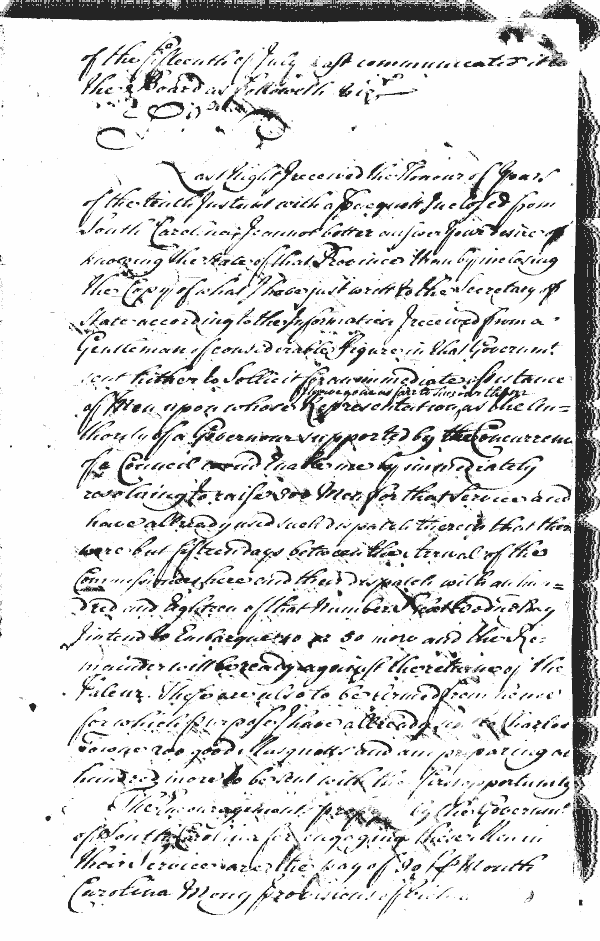 of the fifteenth of July last communicated it to
the Board as followeth viz.t
Last Night I received the Honour of Yours
of the tenth Instant with a Pacquett Inclosed from
South Carolina, I cannot better answer Your desire of
knowing the State of that Province than by inclosing
the Copy of what I have just writt to the Secretary of
State according to the Information I received from a
Gentleman of considerable Figure in that Governm.t
sent hither to Sollicit for an immediate assistance
of Men upon whose Representation as the Au=
thority of a Governour supported by the Concurrence
of a Council could make me by immediately
resolving to raise 300 Men for that Service and
have allready used such dispatch therein that there
were but fifteen days between the Arrival of the
Commissioner here and their dispatch with an hun=
dred and Eighteen of that Number Next Wednesday
I intend to Embarque 40 or 50 more and the Re=
mainder will be ready against the return of the
Valeur. These are also to be armed from hence
for which purpose I have allready sent to Charles
Towne 200 good Musquetts and am preparing an
hundred more to be sent with the first opportunity
The Encouragements by the Governm.t
of South Carolina for engaging these Men in
their Service are the pay of 30 s p Month
Carolina Mony provisions